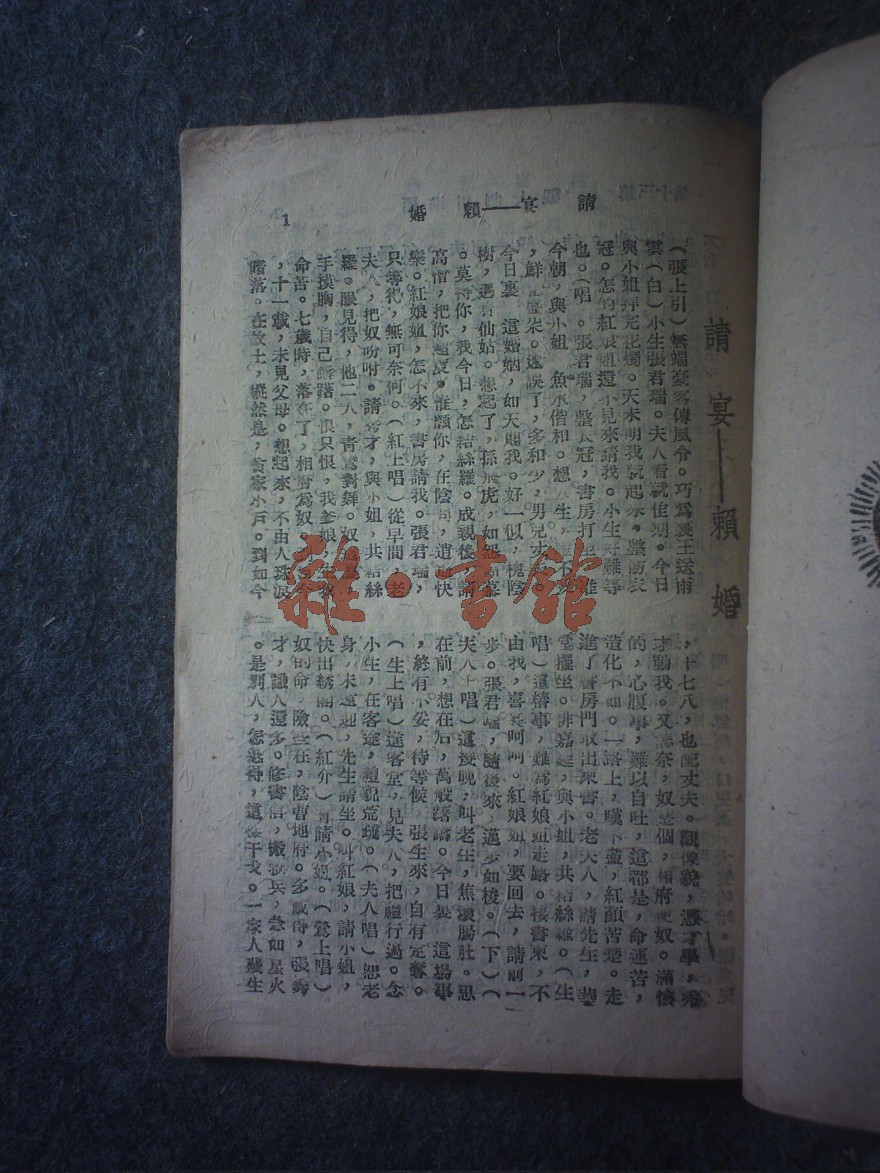 請宴——賴婚
1
請宴——賴婚
（張上引）無端豪客傳風令。巧為襄王送雨
雲（白）小生張君瑞。夫人看就佳期。今日
與小姐拜完花燭。天未明我就起來，整防衣
冠。怎的紅娘姐還不見來請我。小生好難等
也。（唱。張君瑞，整衣冠，書房打坐。
今朝，與小姐，魚水偕和。想
，鮮 未。遲誤了，多和少，男兒
今日裏，這婚姻，如天賜我。好一似，槐陰
樹，遇着仙姑。想起了，孫飛虎，如
。莫 你，我今日，怎結絲羅。成親後，請
高僧，把你超度。惟願你，在陰司，道 快
樂。紅娘姐，怎不來，書房請我。張君瑞，
只等得，無可奈何。（紅上唱）從早間，老
夫人，把奴吩咐。請秀才，與小姐，共結絲
羅。眼見得，他二人，青鸞對舞。奴
手摸胸，自己 躇。恨只恨，我爹娘，生我
命苦。七歲時，落在了，相府為奴。
，十一載，未見父母。想起來，不由人珠淚
偷落。在故土，縱然是，貧家小戶。到如今
，十七八，也配丈夫。觀像貌，憑才學，秀
才動我。又 奈，奴是個，相府 奴。滿懷
的，心腹事，難以自吐，這都是，命運苦，
造化不如。一路上，嘆不盡，紅顏苦楚。走
進了書房門取出來書。老夫人，請先生，華
堂擺坐。排嘉筵，與小姐，共結絲羅。（生
唱）這禧事，難為紅娘姐走路。接書束，不
由我，喜笑呵呵。紅娘姐，要回去，請前一
步。張君瑞，隨後來，邁步如梭。（下）（
夫人上唱）這 晚，叫老生，焦損腸肚。思
在前，想在后，萬般躊躇。今日裏，這場事
，終有不妥，待等候，張生來，自有定奪。
（生上唱）進客堂，見夫人，把禮行過。念
小生，在客途，禮貌荒疏。（夫人唱）恕老
身，未遠迎，先生請坐。叫紅娘，請小姐，
快出綉閣。（紅介）有請小姐。（鶯上唱）
奴的命，險些在，陰曹地府。多感得，張秀
才，讓人還多。修書信，搬救兵，急如星火
。是別人，怎惹得，這樣干戈。一家人殘生